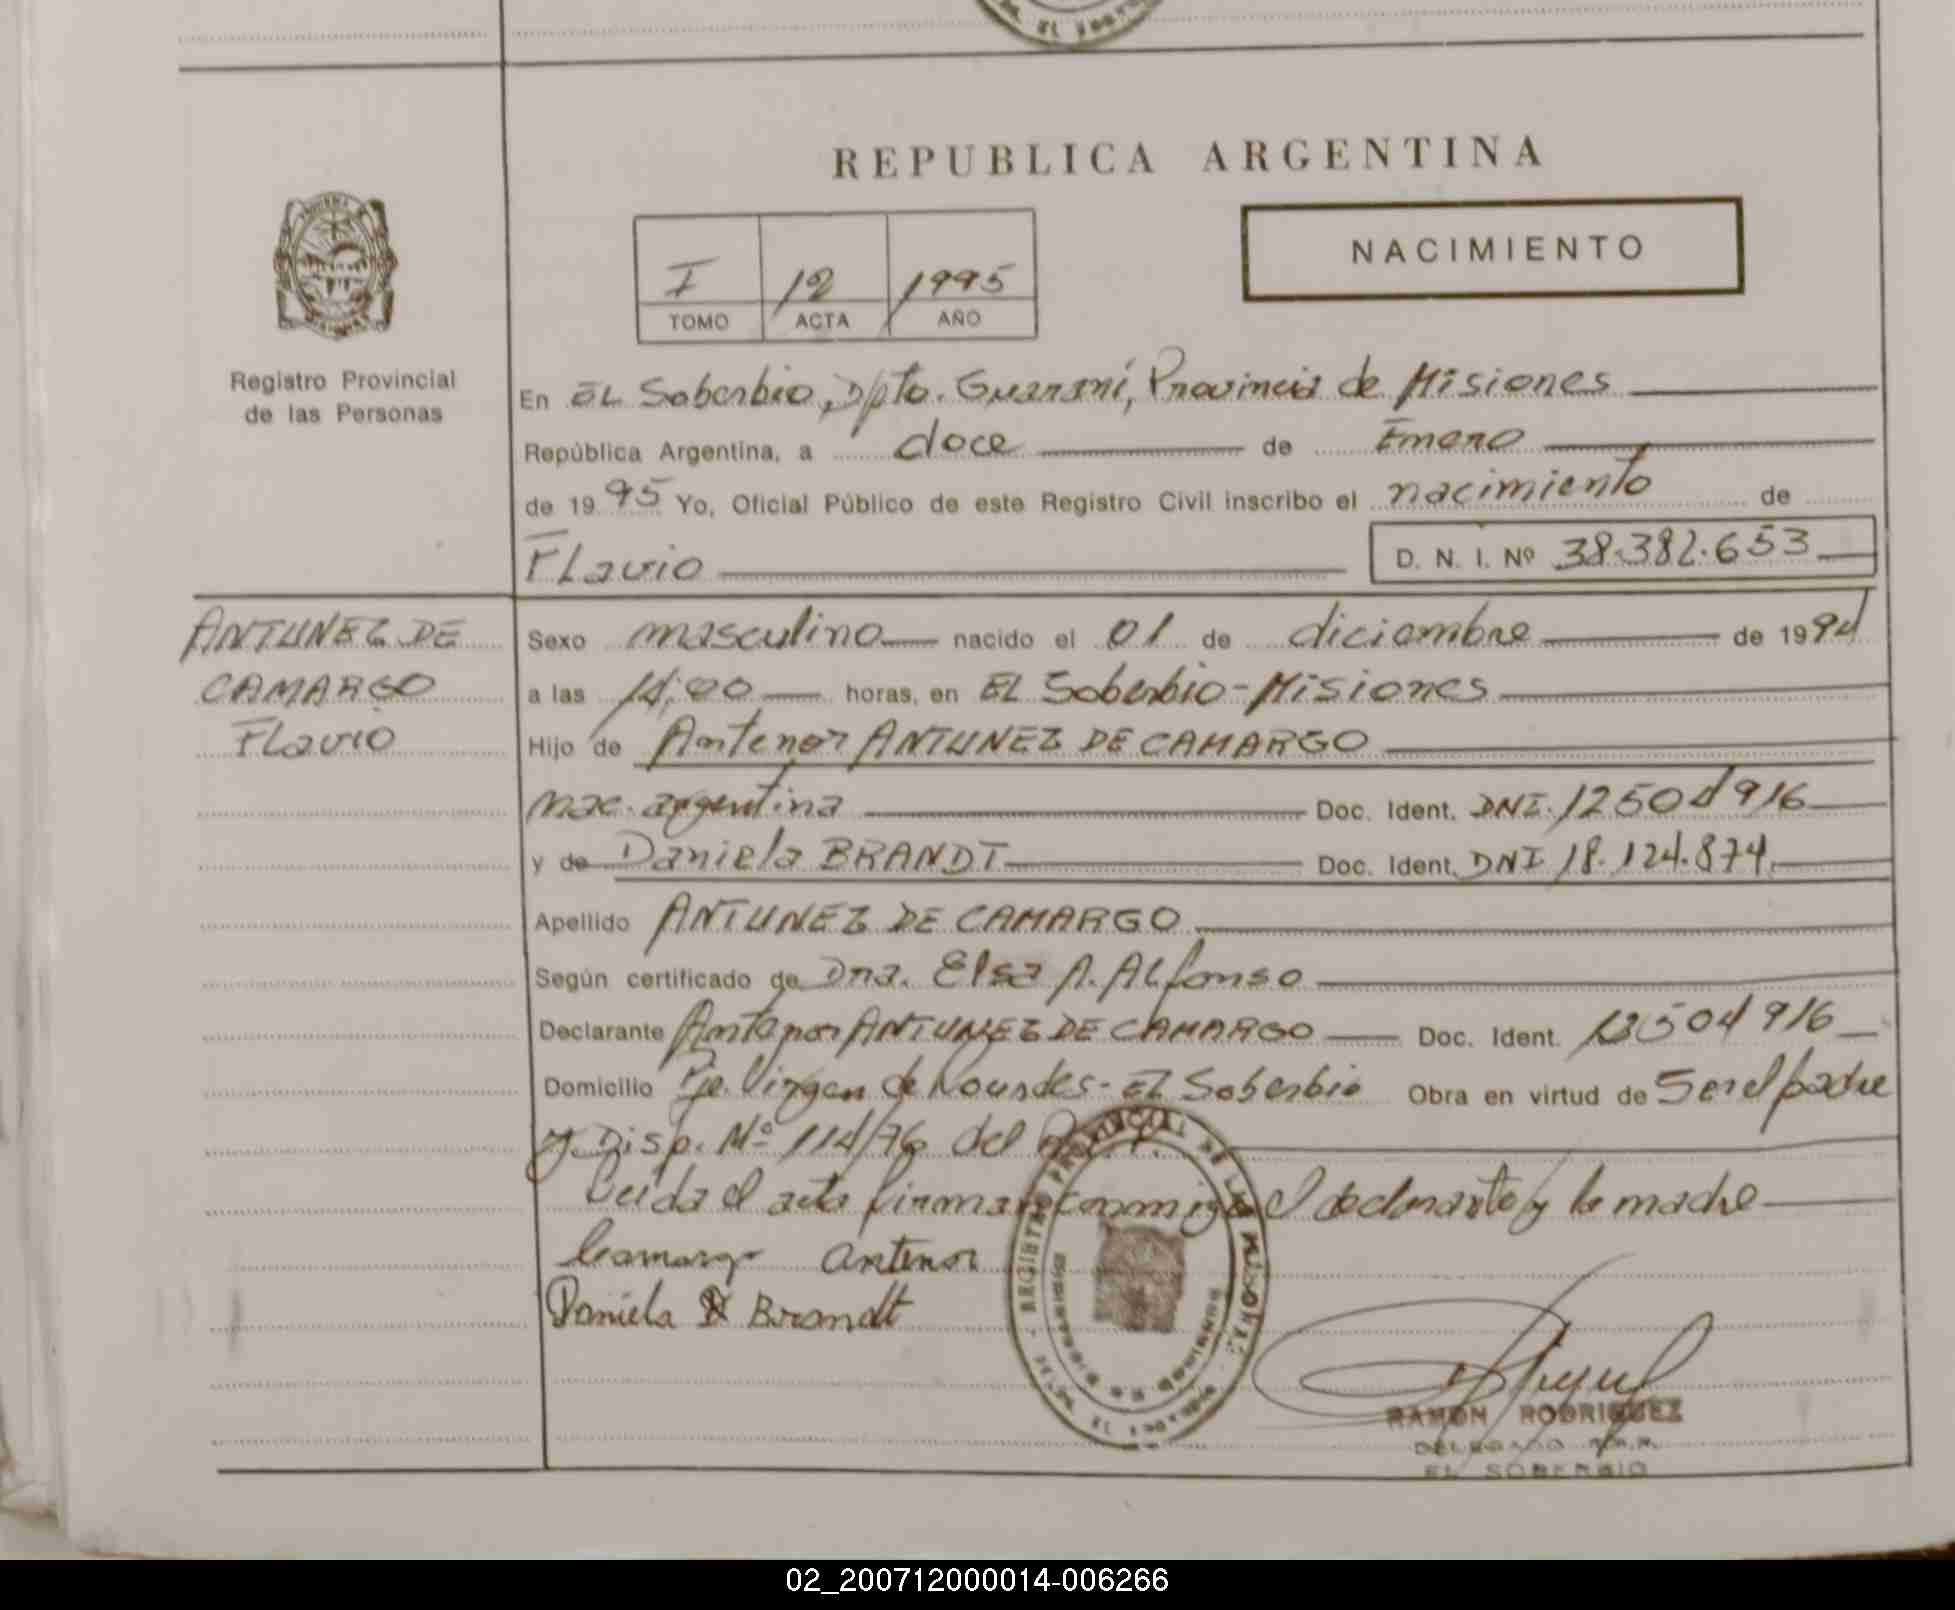 REPUBLICA ARGENTINA
NACIMIENTO
I 12 1995
TOMO ACTA AÑO
Registro Provincial
de las Personas
En EL Soberbio, Dpto. Guaraní, Provincia de Misiones
República Argentina, a doce de Enero
de 1995 Yo, Oficial Público de este Registro Civil inscribo el nacimiento de
Flavio D. N. I. Nº 38.382.653
ANTUNEZ DE
CAMARGO
Flavio
Sexo masculino nacido el 01 de diciembre de 1994
a las 14,00 horas, en EL Soberbio-Misiones
Hijo de Antenor ANTUNEZ DE CAMARGO
nac. argentina Doc. Ident. DNI. 12504916
y de Daniela BRANDT Doc. Ident. DNI 18.124.874
Apellido ANTUNEZ DE CAMARGO
Según certificado de Dra. Elsa A. Alfonso
Declarante Antenor ANTUNEZ DE CAMARGO Doc. Ident. 12504916
Domicilio Pje. Virgen de Lourdes- EL Soberbio Obra en virtud de Ser el padre
y Disp. Nº 114/76 del
Leida el acta firman conmigo el declarante y la madre
Camargo Antenor
Daniela Brandt
REGISTRO PROVINCIAL DE LAS
RAMON RODRIGUEZ
DELEGADO
EL SOBERBIO
02_200712000014-006266